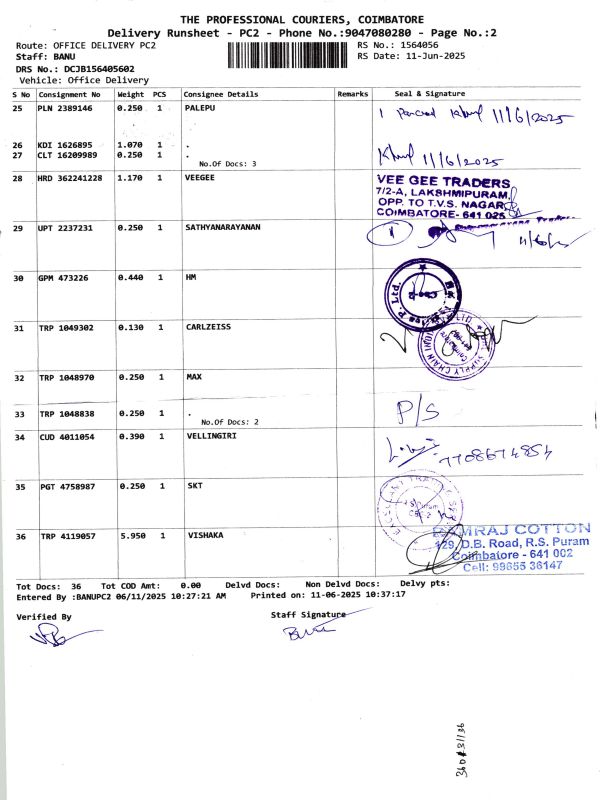 THE PROFESSIONAL COURIERS, COIMBATORE
Delivery Runsheet - PC2 - Phone No.:9047080280 - Page No.:2
Route: OFFICE DELIVERY PC2
Staff: BANU
DRS No.: DCJB156405602
Vehicle: Office Delivery
RS No.: 1564056
RS Date: 11-Jun-2025
S No Consignment No Weight PCS Consignee Details Remarks Seal & Signature
25 PLN 2389146 0.250 1 PALEPU
11/6/2025
26 KDI 1626895 1.070 1 .
27 CLT 16209989 0.250 1 .
No.Of Docs: 3
11/6/2025
28 HRD 362241228 1.170 1 VEEGEE
VEE GEE TRADERS
7/2-A, LAKSHMIPURAM,
OPP. TO T.V.S. NAGAR,
COIMBATORE- 641 025
29 UPT 2237231 0.250 1 SATHYANARAYANAN
30 GPM 473226 0.440 1 HM
31 TRP 1049302 0.130 1 CARLZEISS
32 TRP 1048970 0.250 1 MAX
33 TRP 1048838 0.250 1 .
No.Of Docs: 2
P/S
34 CUD 4011054 0.390 1 VELLINGIRI
7708674854
35 PGT 4758987 0.250 1 SKT
36 TRP 4119057 5.950 1 VISHAKA
RAMRAJ COTTON
129, D.B. Road, R.S. Puram
Coimbatore - 641 002
Cell: 99655 36147
Tot Docs: 36 Tot COD Amt: 0.00 Delvd Docs: Non Delvd Docs: Delvy pts:
Entered By :BANUPC2 06/11/2025 10:27:21 AM Printed on: 11-06-2025 10:37:17
Verified By
Staff Signature
Banu